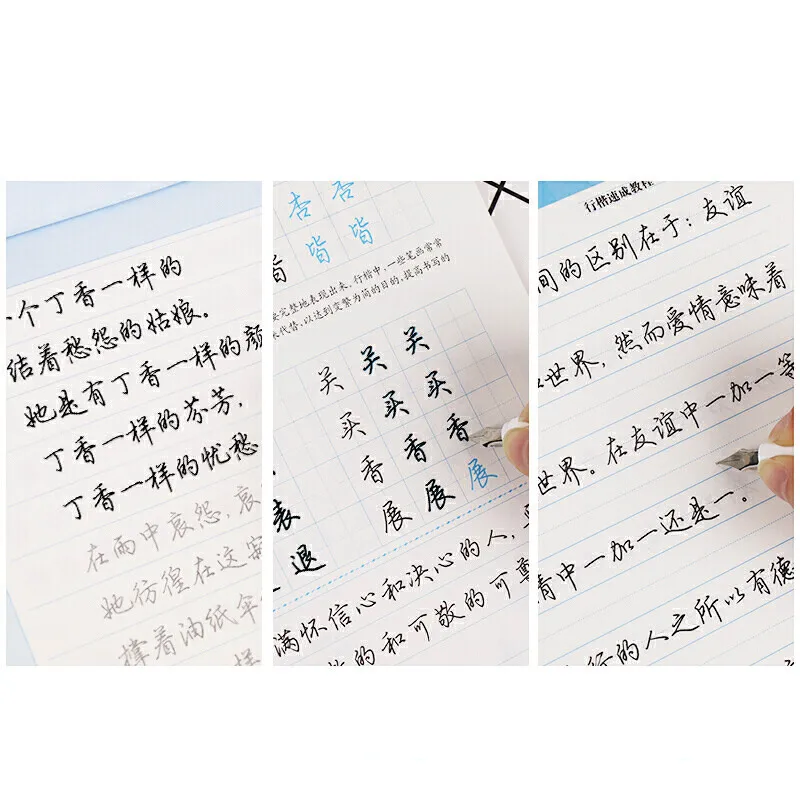 个丁香一样的
结着愁怨的姑娘。
她是有丁香一样的颜
丁香一样的芬芳，
丁香一样的忧愁
在雨中哀怨，哀
她彷徨在这寂
撑着油纸伞
杏 杏
皆 皆
完整地表现出来。行楷中，一些笔画常常
来代替，以达到变繁为简的目的，提高书写的
关 关 关
买 买 买
香 香 香
展 展 展
表
退
满怀信心和决心的人，
的和可敬的可尊
行楷速成教程
间的区别在于：友谊
世界，然而爱情意味着
世界。在友谊中一加一等
情中一加一还是一。
行的人之所以有德